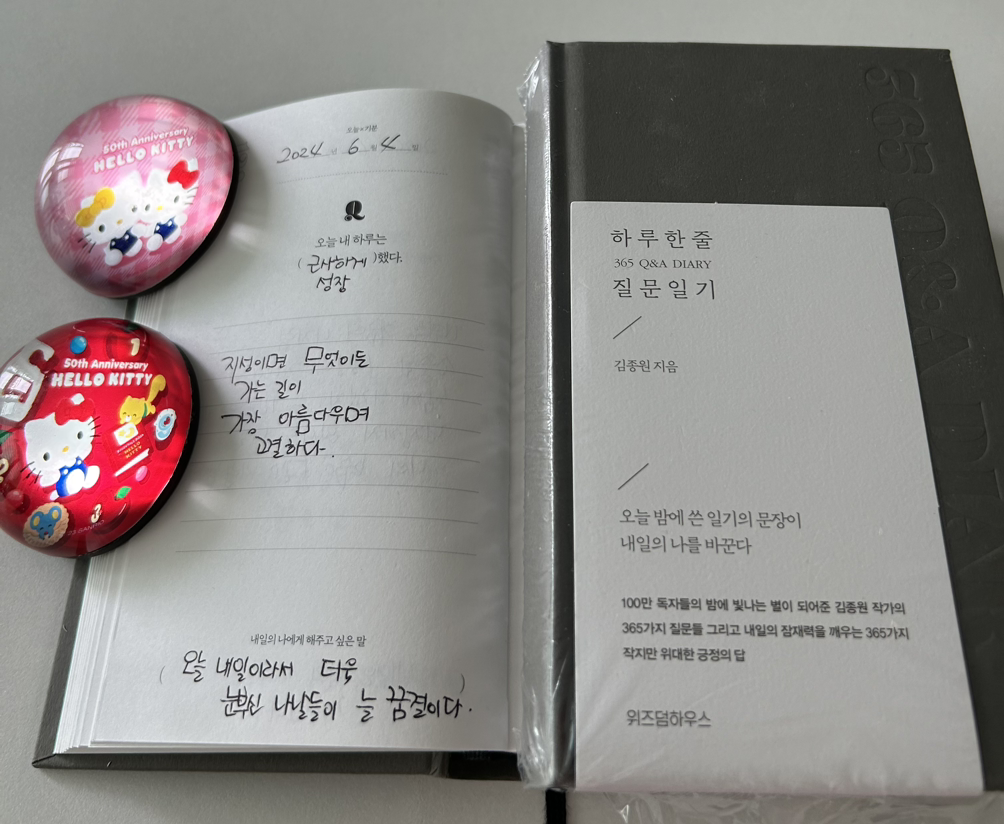 50th Anniversary
HELLO KITTY
50th Anniversary
HELLO KITTY
오늘의 기분
2024년 6월 4일
오늘 내 하루는
( 근사하게 )했다.
성장
지성이면 무엇이든
가는 길이
가장 아름다우며
고결하다.
내일의 나에게 해주고 싶은 말
( 오늘 내일이라서 더욱
눈부신 나날들이 늘 꿈결이다. )
365 Q&A DIA
하루 한 줄
365 Q&A DIARY
질문 일기
김종원 지음
오늘 밤에 쓴 일기의 문장이
내일의 나를 바꾼다
100만 독자들의 밤에 빛나는 별이 되어준 김종원 작가의
365가지 질문들 그리고 내일의 잠재력을 깨우는 365가지
작지만 위대한 긍정의 답
위즈덤하우스